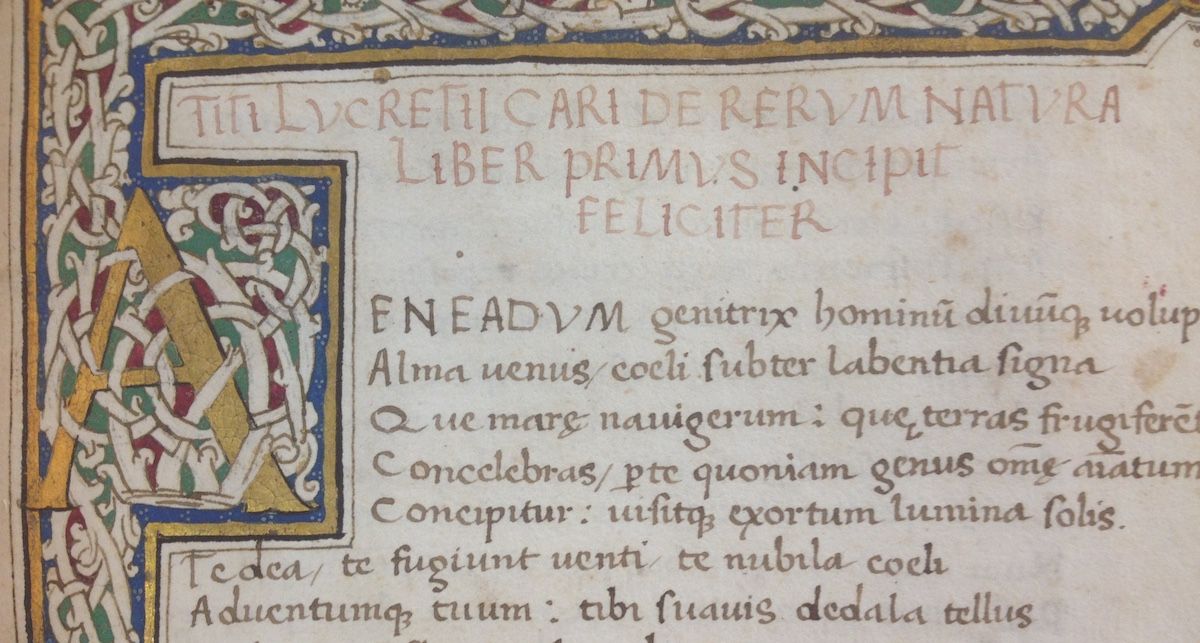 TITI LVCRETII CARI DE RERVM NATVRA
LIBER PRIMVS INCIPIT
FELICITER
AENEADVM genitrix hominū diuūꝗ uolup
Alma uenus/ cœli subter labentia signa
Que marę nauigerum: quę terras frugiferēt
Concelebras/ ꝑte quoniam genus omę aīatum
Concipitur: uisitꝗ exortum lumina solis.
Te dea/ te fugiunt uenti/ te nubila cœli
Aduentumꝗ tuum: tibi suauis dedala tellus